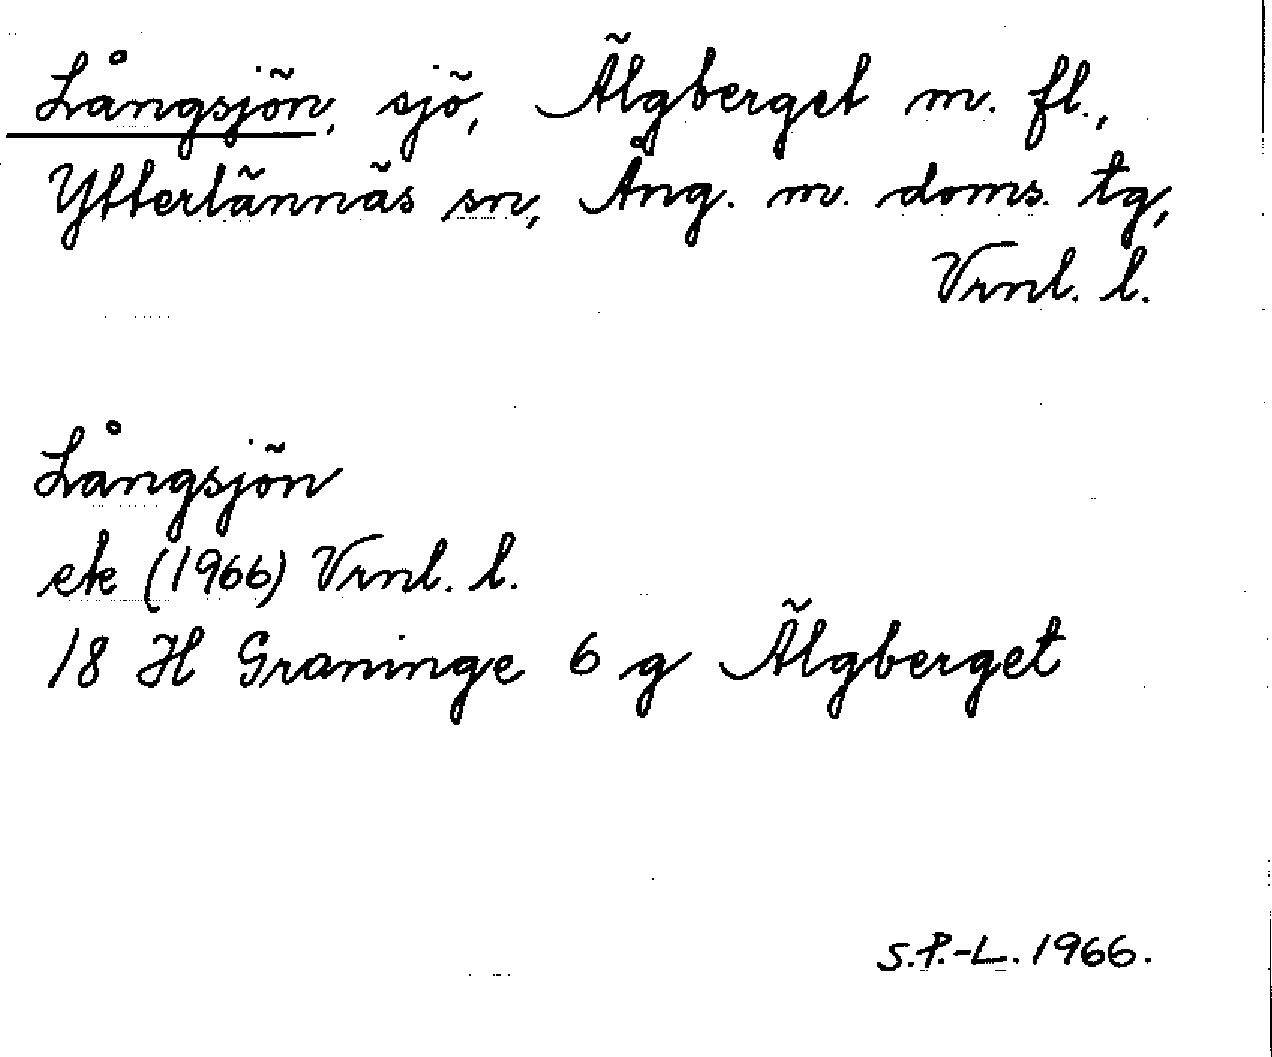 Långsjön, sjö, Älgberget m. fl.,
Ytterlännäs sn, Ång. m. doms. tg,
Vrnl. l.
Långsjön
ek (1966) Vrnl. l.
18 H Graninge 6 g Älgberget
S.P.-L. 1966.